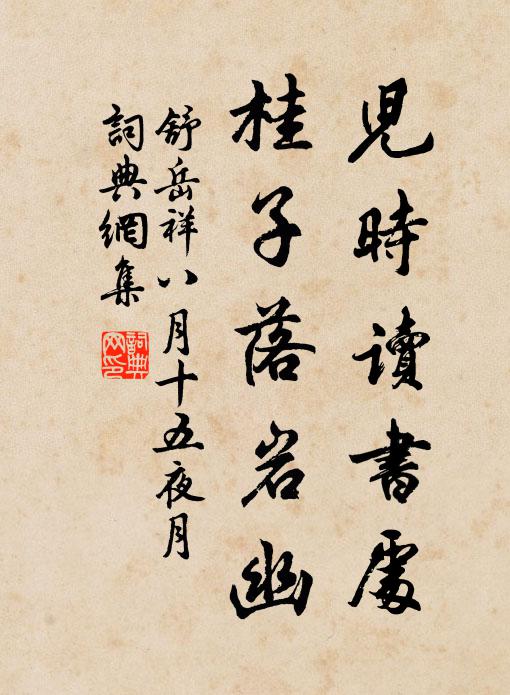 兒時讀書處
桂子落岩幽
舒岳祥八月十五夜月
詞典網集
詞典網印